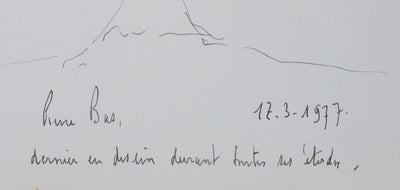 Pierre Bas, 17.3.1977.
dernier en dessin durant toutes ses études.